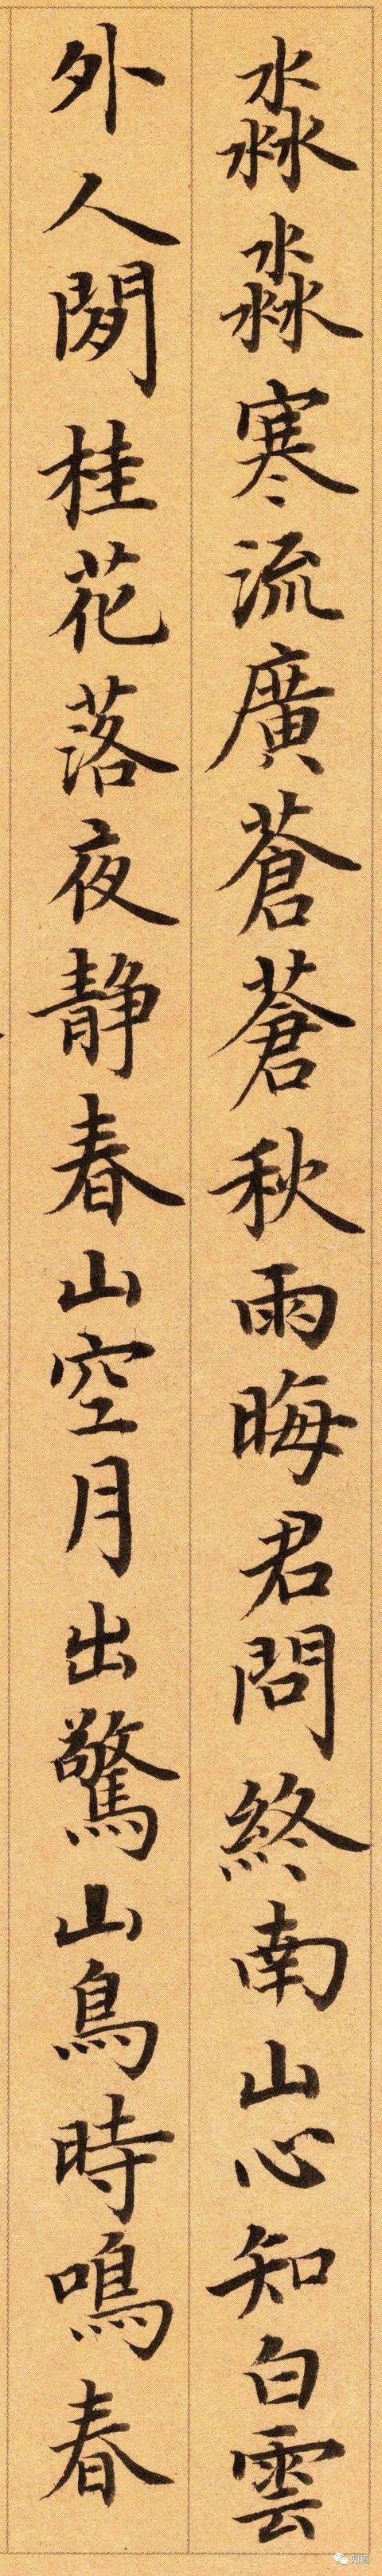 淼淼寒流廣蒼蒼秋雨晦君問終南山心知白雲
外人閒桂花落夜靜春山空月出驚山鳥時鳴春